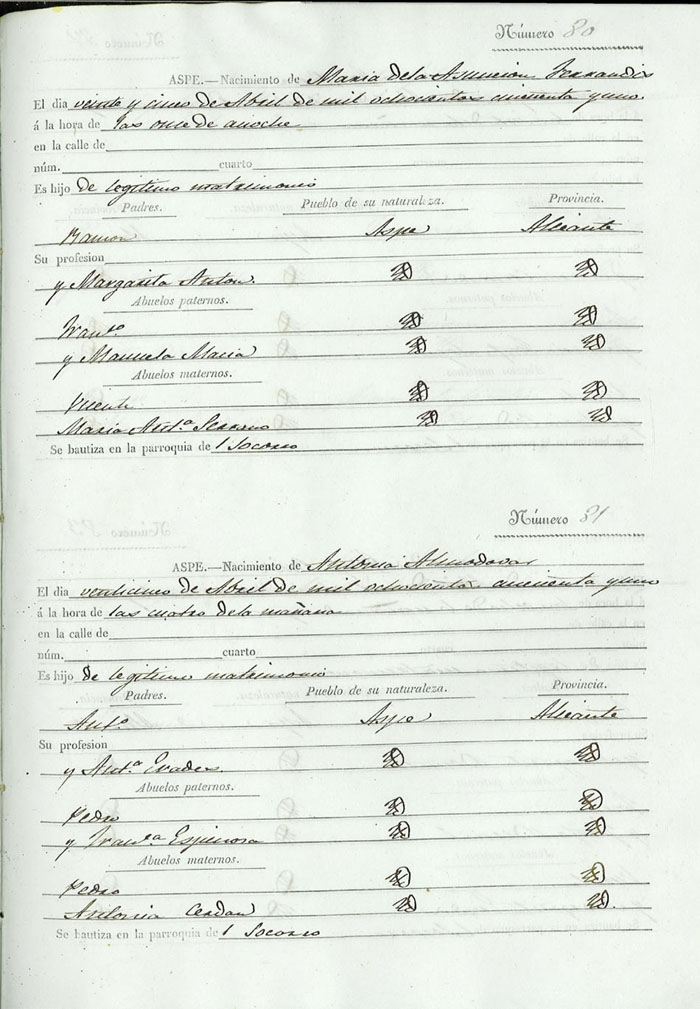 Número 80
ASPE.—Nacimiento de Maria dela Asuncion Ferrandis
El dia veinte y cinco de Abril de mil ochocientos cincuenta y uno
á la hora de las once de anoche
en la calle de
núm. cuarto
Es hijo de legitimo matrimonio
Padres. Pueblo de su naturaleza. Provincia.
Ramon Aspe Alicante
Su profesion
y Margarita Anton.
Abuelos paternos.
Franco
y Manuela Macia
Abuelos maternos.
Vicente
Maria Anta Serrano
Se bautiza en la parroquia de l Socorro
Número 81
ASPE.—Nacimiento de Antonia Almodovar
El dia venticinco de Abril de mil ochocientos cincuenta y uno
á la hora de las cuatro dela mañana
en la calle de
núm. cuarto
Es hijo de legitimo matrimonio
Padres. Pueblo de su naturaleza. Provincia.
Anto Aspe Alicante
Su profesion
y Anta
Abuelos paternos.
Pedro
y Franca Espinosa
Abuelos maternos.
Pedro
Antonia Cerdan
Se bautiza en la parroquia de l Socorro